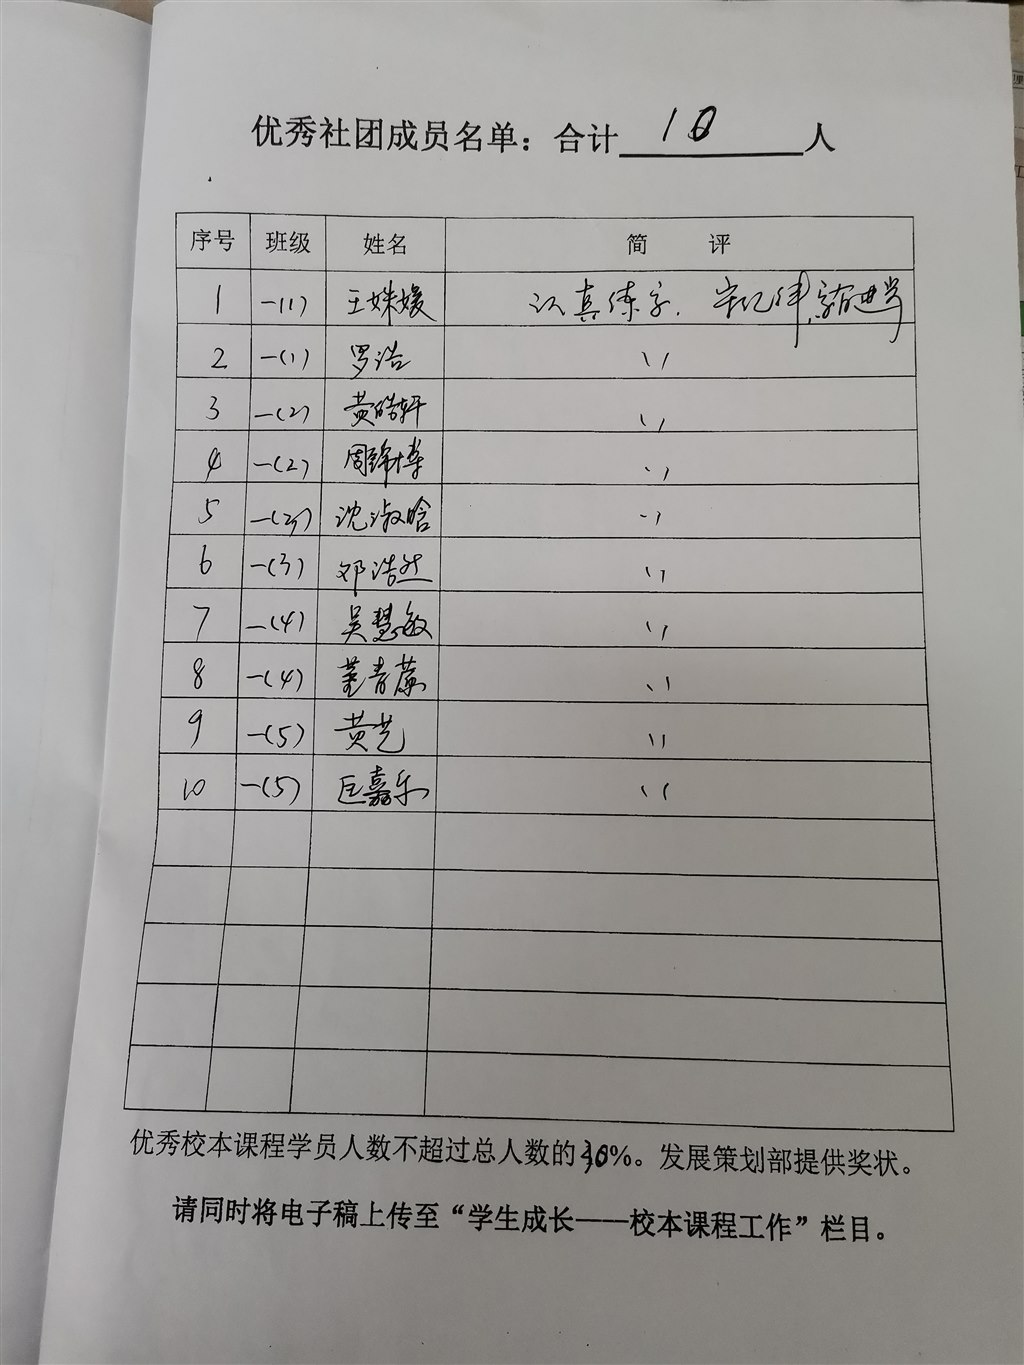 优秀社团成员名单：合计 10 人
序号 班级 姓名 简 评
1 一(1) 王姝媛 认真练字，守纪律，
2 一(1) 罗浩 〃
3 一(2) 黄皓轩 〃
4 一(2) 周锦博 〃
5 一(3) 沈淑晗 〃
6 一(3) 邓浩然 〃
7 一(4) 吴慧敏 〃
8 一(4) 董青 〃
9 一(5) 黄艺 〃
10 一(5) 匡嘉乐 〃
优秀校本课程学员人数不超过总人数的30%。发展策划部提供奖状。
请同时将电子稿上传至“学生成长——校本课程工作”栏目。